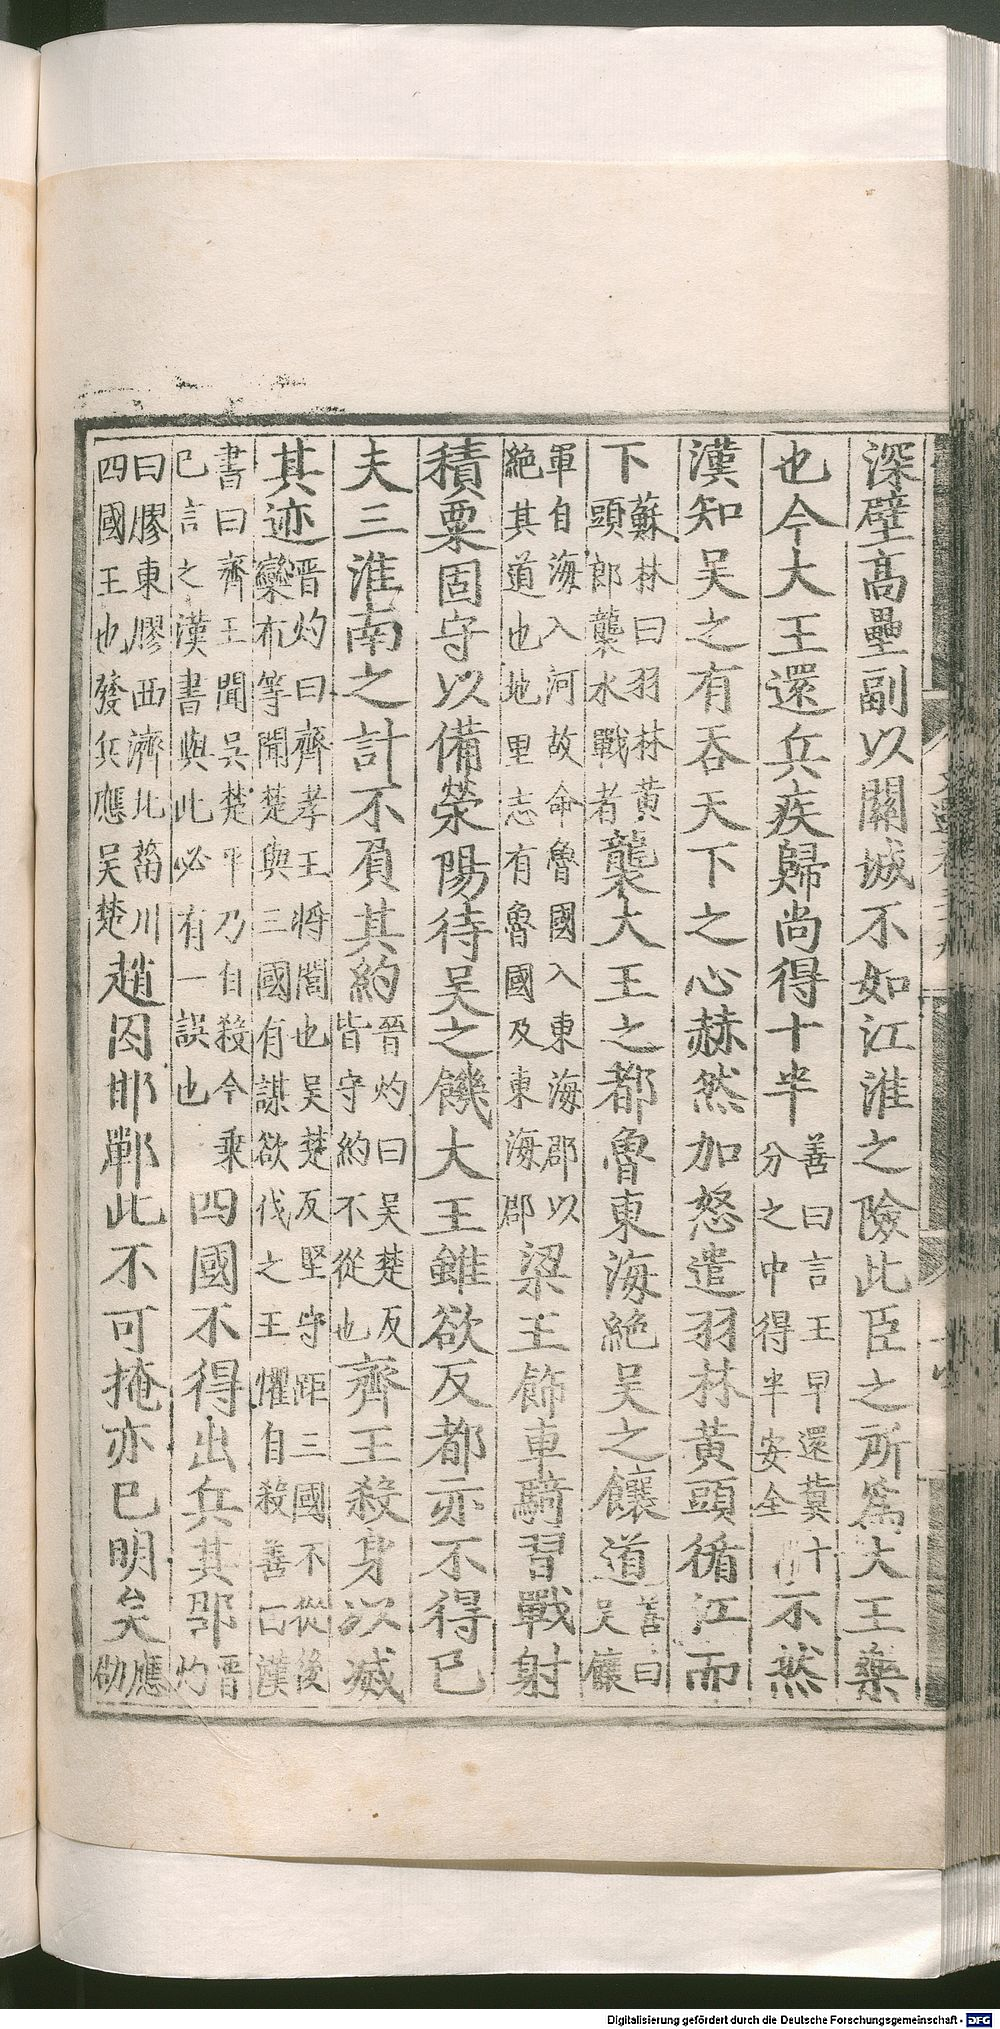 深壁高壘副以關城不如江淮之險此臣之所爲大王樂
也今大王還兵疾歸尚得十半善曰言王早還冀十分之中得半安全不然
漢知吴之有吞天下之心赫然加怒遣羽林黃頭循江而
下蘇林曰羽林黃頭郎襲水戰者襲大王之都魯東海絶吴之饟道善曰吴饟
軍自海入河故命魯國入東海郡以絶其道也地里志有魯國及東海郡梁王飾車騎習戰射
積粟固守以備滎陽待吴之饑大王雖欲反都亦不得已
夫三淮南之計不負其約晉灼曰吴楚反皆守約不從也齊王殺身以滅
其迹晉灼曰齊孝王將閭也吴楚反堅守距三國不從後欒布等聞楚與三國有謀欲伐之王懼自殺善曰漢
書曰齊王聞吴楚平乃自殺今乘已言之漢書與此必有一誤也四國不得出兵其郡晉灼
曰膠東膠西濟北菑川四國王也發兵應吴楚趙囚邯鄲此不可掩亦已明矣應劭
Digitalisierung gefördert durch die Deutsche Forschungsgemeinschaft - DFG